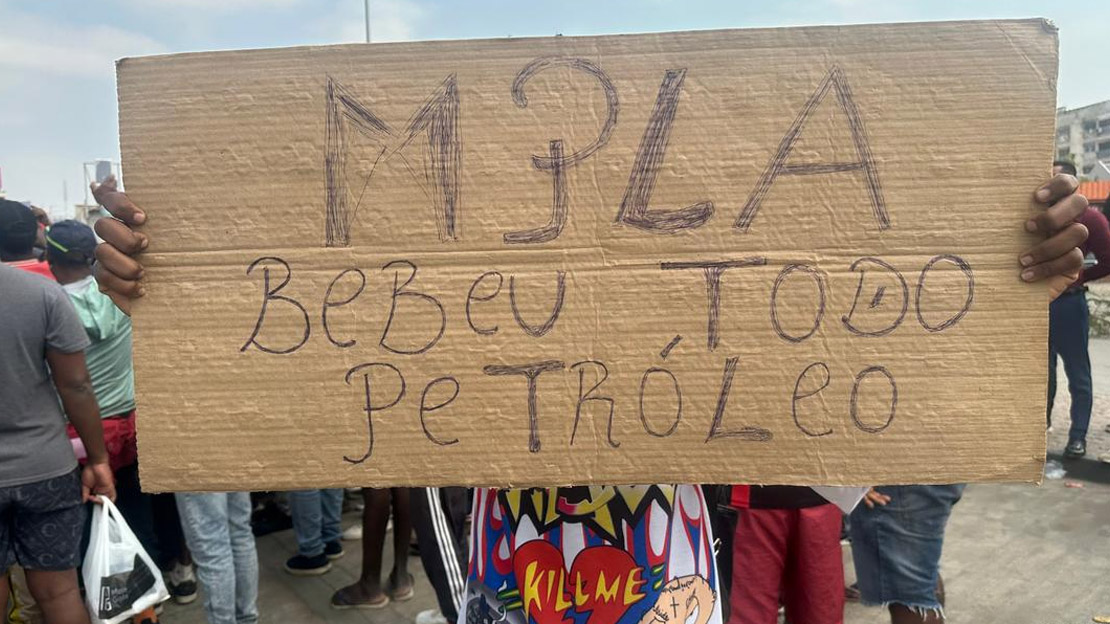 MPLA
BeBeu TODO
PeTRÓLeO
KILL ME